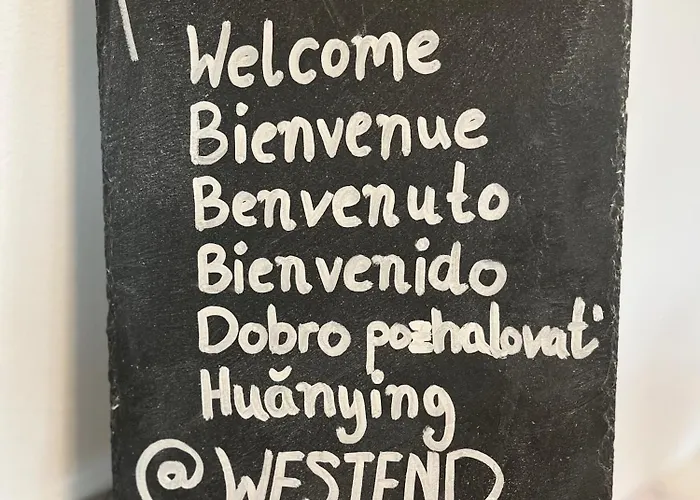 Welcome
Bienvenue
Benvenuto
Bienvenido
Dobro pozhalovat'
Huǎnying
@ WESTEND